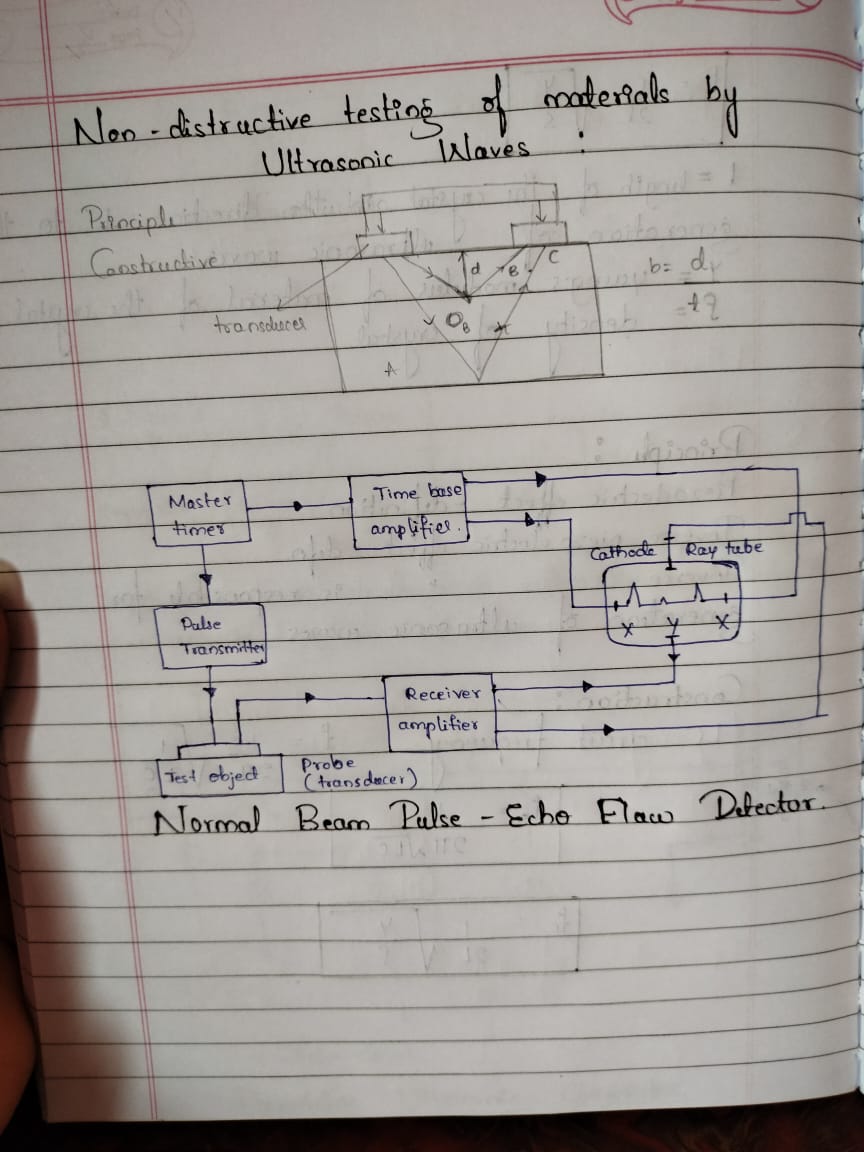 Non-distructive testing of materials by
Ultrasonic Waves :
Principle
Constructive
transducer
d
B
C
O
B
A
b= d
Master
timer
Time base
amplifier.
Cathode Ray tube
X Y X
Pulse
Transmitter
Receiver
amplifier
Test object
Probe
(transducer)
Normal Beam Pulse - Echo Flaw Detector.